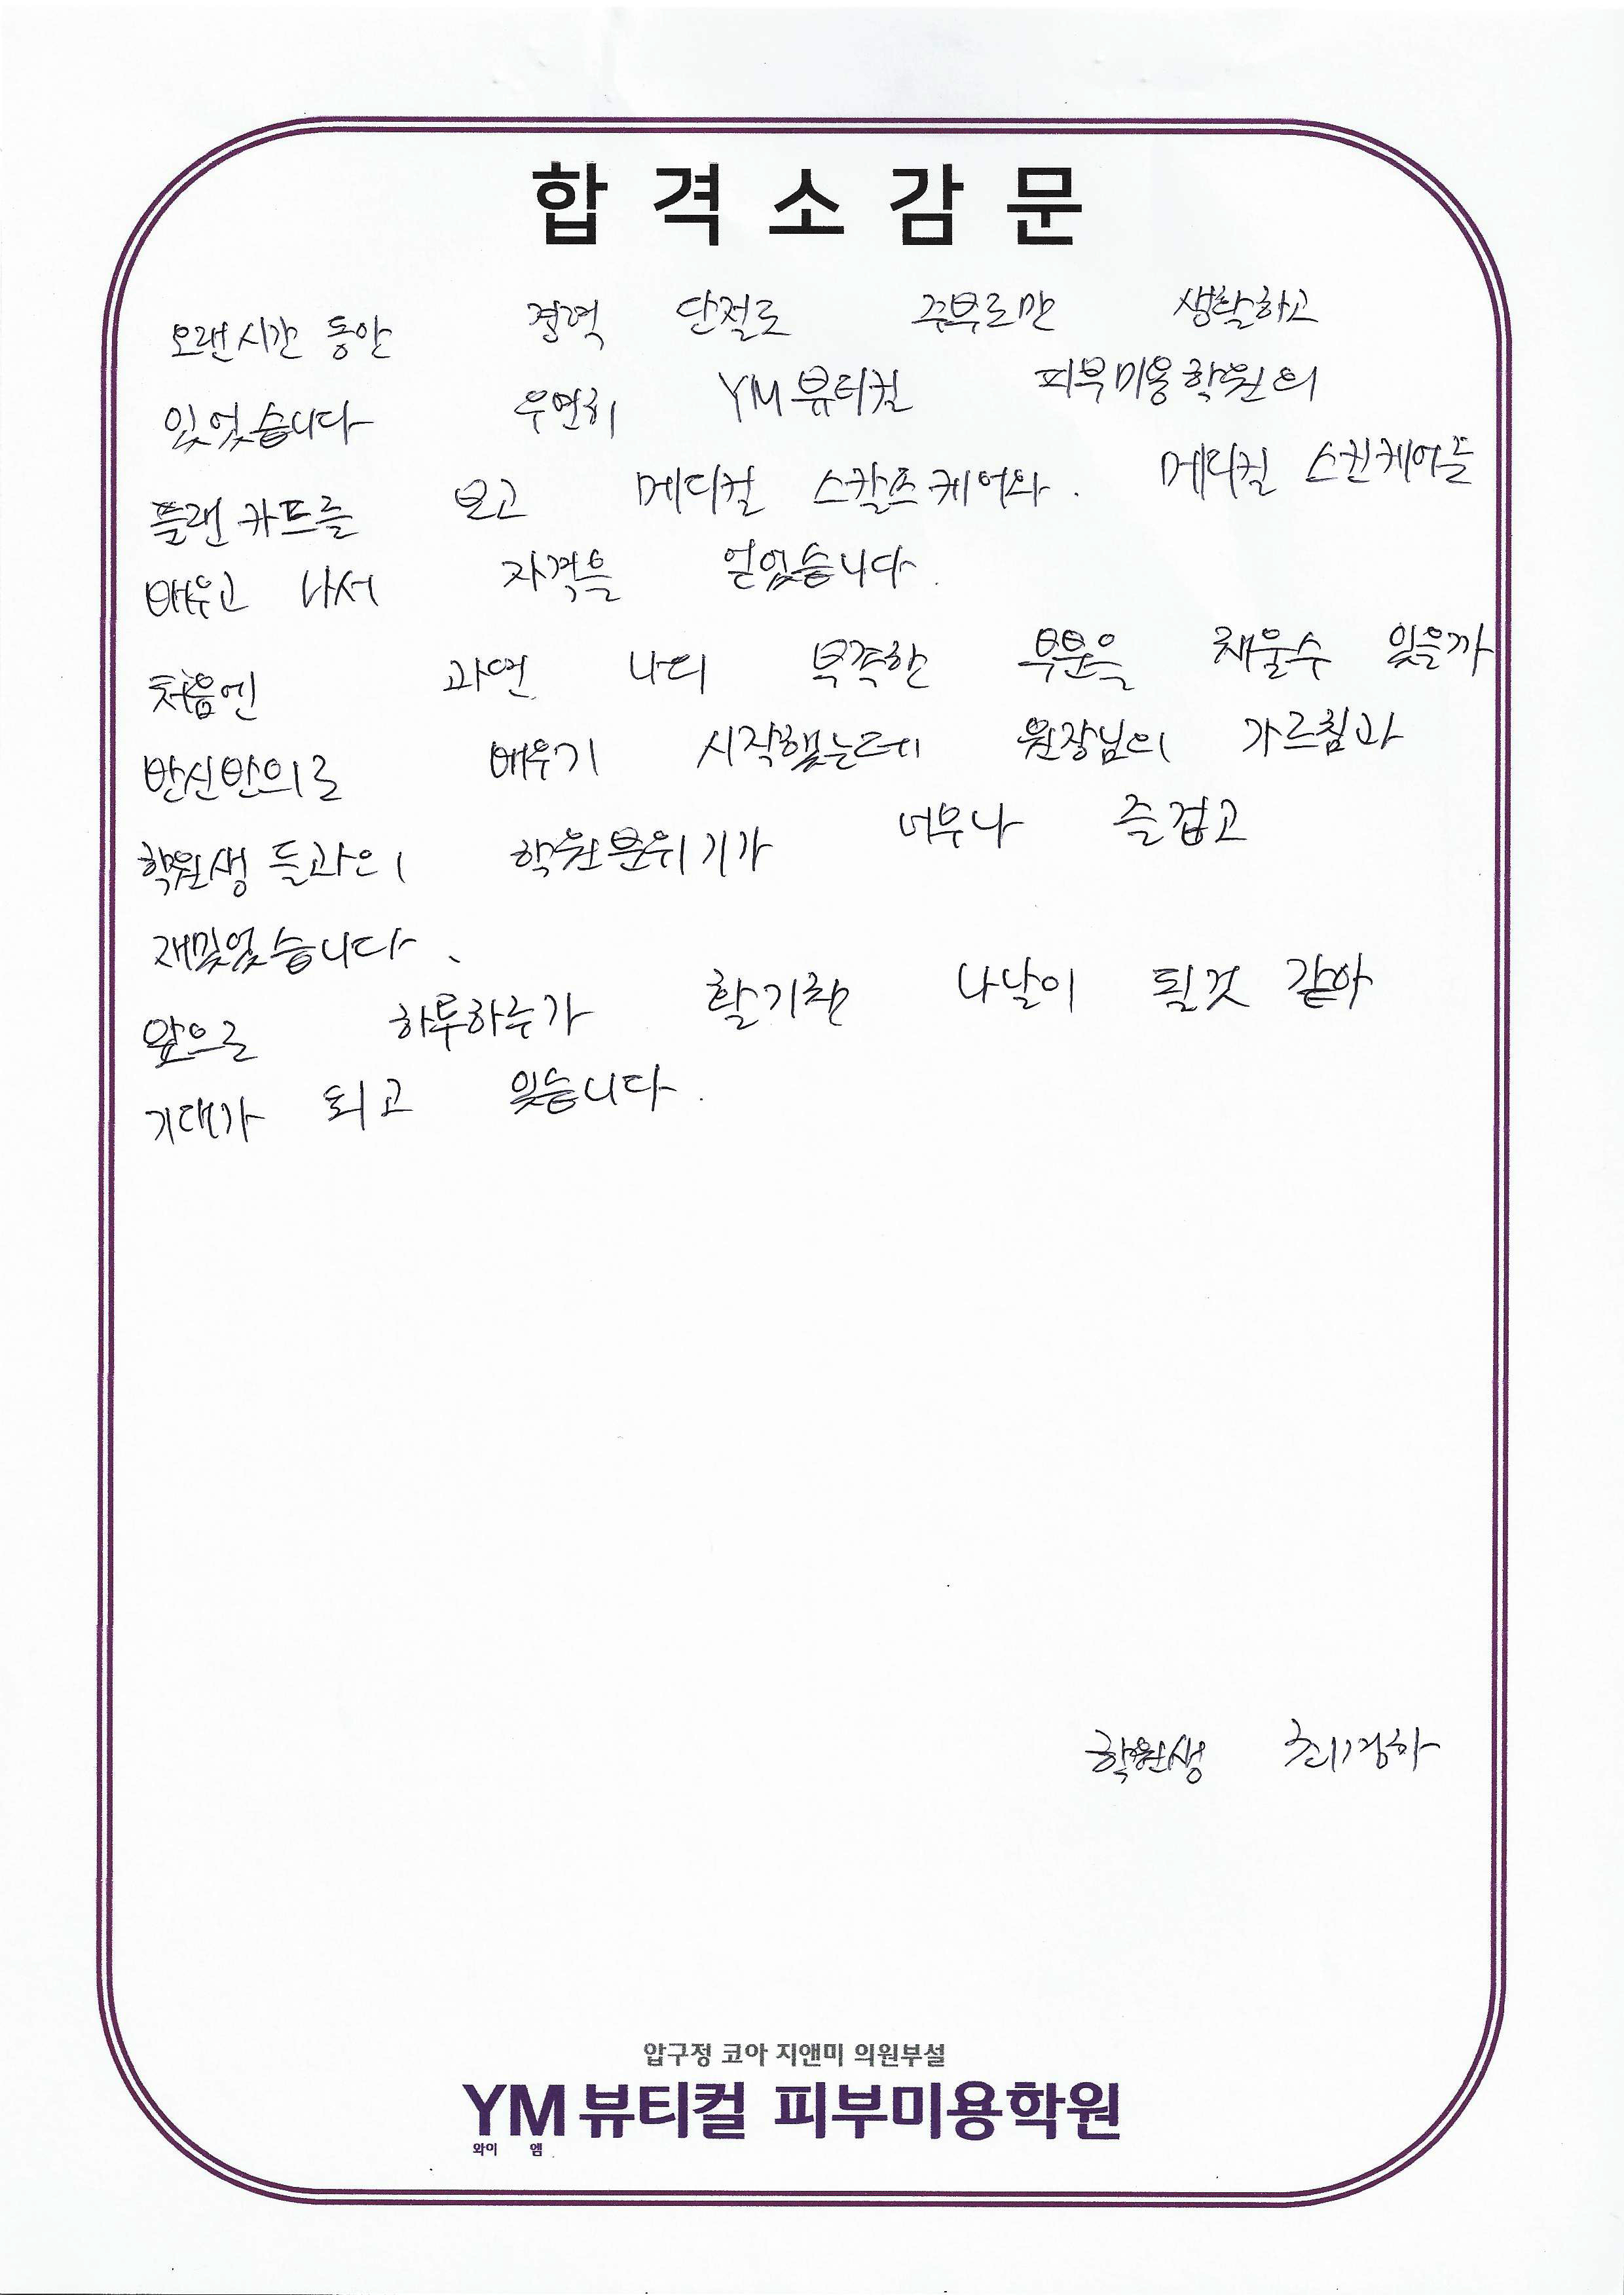 합격소감문
오랜시간 동안 경력 단절로 주부로만 생활하고
있었습니다 우연히 YM뷰티컬 피부미용학원의
플랜카드를 보고 메디컬 스칼프케어와. 메디컬 스킨케어를
배우고 나서 자격을 얻었습니다.
처음엔 과연 나의 부족한 부분을 채울수 있을까
반신반의로 배우기 시작했는데 원장님의 가르침과
학원생 들과의 학원분위기가 너무나 즐겁고
재밌었습니다.
앞으로 하루하루가 활기찬 나날이 될것 같아
기대가 되고 있습니다.
학원생 최경하
압구정 코아 지앤미 의원부설
YM뷰티컬 피부미용학원
와이 엠